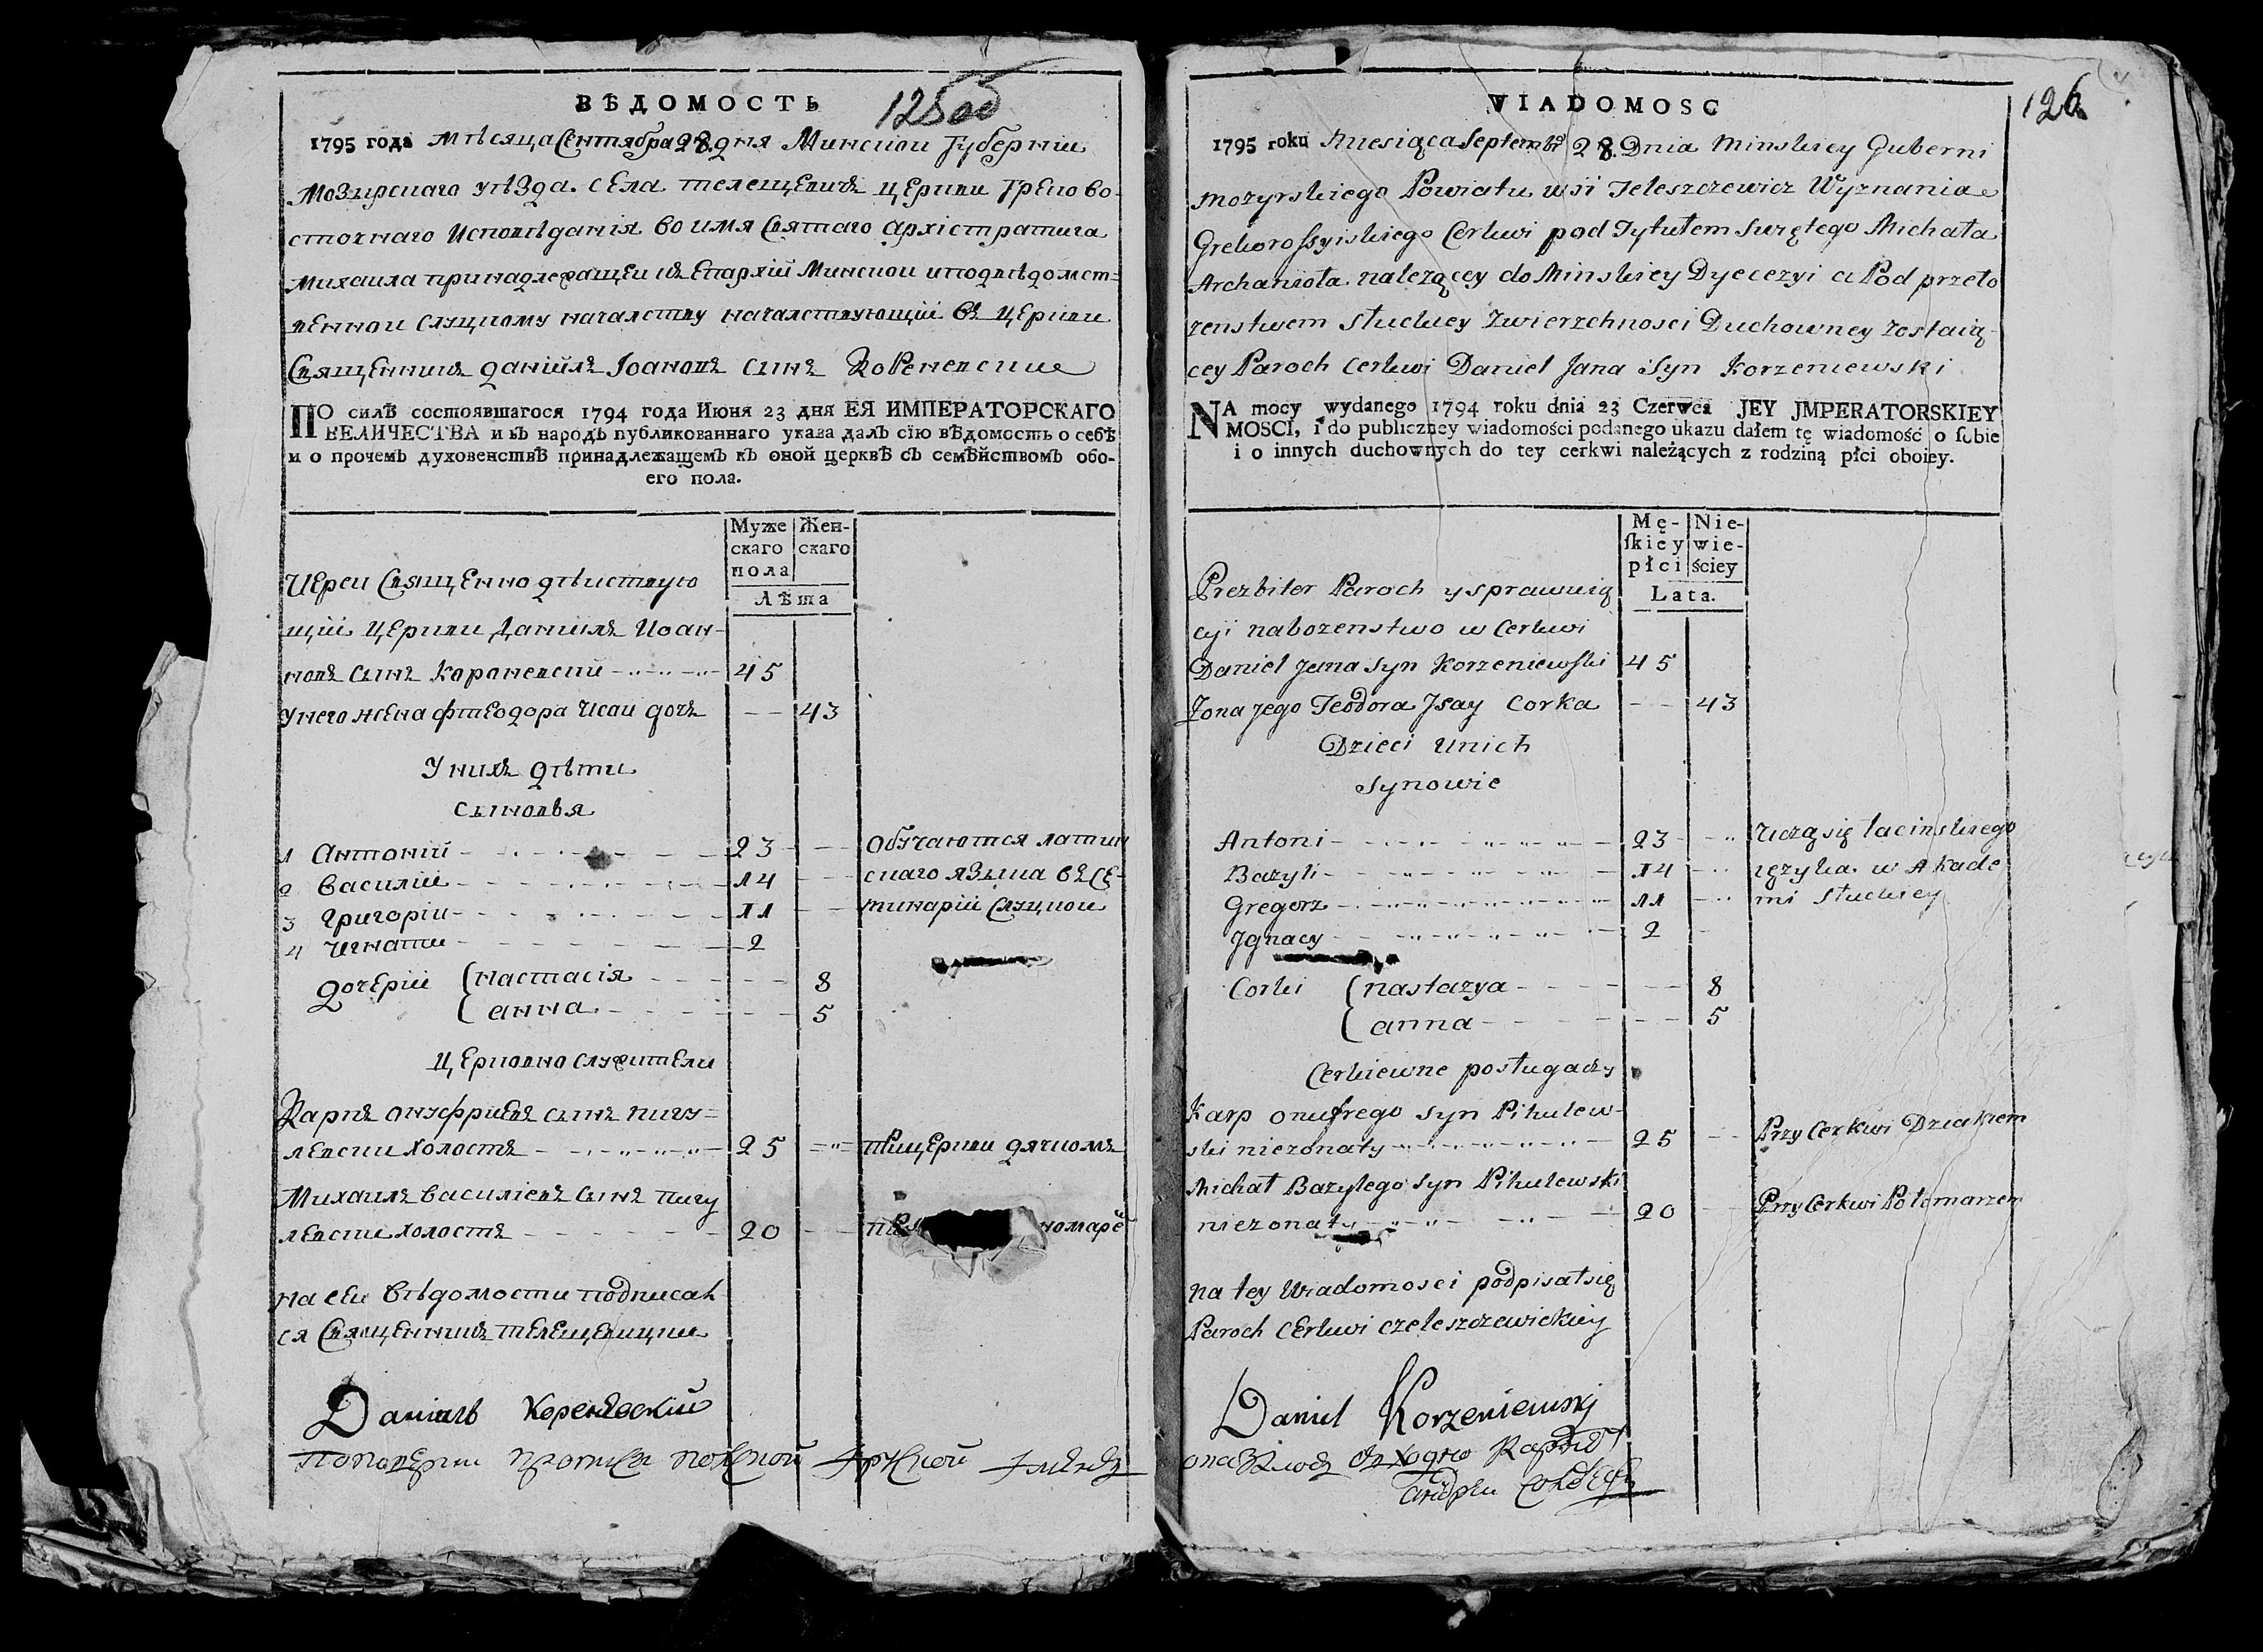 ВѢДОМОСТЬ
125 об
1795 года мѣсяца Сентября 28. дня Минской Губерніи
Мозырскаго уѣзда. села телещевичъ церкви Греково-
сточнаго исповѣданія во имя Святаго архістратига
михаила принадлежащей къ Епархіи Минской и подвѣдомст=
венной слуцкому началству началствующій въ церкви
Священникъ даніилъ Іоановъ сынъ Кореневские
ПО силѣ состоявшагося 1794 года Июня 23 дня ЕЯ ИМПЕРАТОРСКАГО
ВЕЛИЧЕСТВА и въ народъ публикованнаго указа далъ сїю вѣдомость о себѣ
и о прочемъ духовенствѣ принадлежащемъ къ оной церквѣ съ семѣйствомъ обо-
его пола.
Муже Жен-
скаго скаго
пола
Лѣта
Иереи Священнодѣиствую
щіи церкви Даніилъ Иоан-
новъ сынъ Кароневскій 45
у него жена фтеодора Исаи дочъ — 43
У нихъ дѣти
сыновья
1 Антоній 23 — обучаются латин
2 василій 14 — скаго языка въ се-
3 григоріи 11 — минаріи слуцкои
4 игнатии 2
дочеріи { настасія — 8
{ анна. — 5
церковнослужители
Карпъ онуфриевъ сынъ пигу=
левски холостъ 25 — при церкви дячкомъ
Михаилъ василіевъ сынъ пигу
левски холостъ 20 — номаре
на сеи вѣдомости подписал
ся Священникъ телещевицки
Даниилъ Кореневский
126.
VIADOMOSC
1795 roku miesiąca Septembr 28. Dnia Minskiey Guberni
mozyrskiego Powiatu wsi Teleszczewicz Wyznania
Grekorossyiskiego Cerkwi pod Tytułem swiętego Michała
Archanioła nalezącey do Minskiey Dyecezyi a Pod przeło
zenstwem słuckiey zwierzchnosci Duchowney zostaią-
cey Paroch Cerkwi Daniel Jana Syn Korzeniewski
NA mocy wydanego 1794 roku dnia 23 Czerwca JEY JMPERATORSKIEY
MOSCI, i do publiczney wiadomości podanego ukazu dałem tę wiadomość o ſobie
i o innych duchownych do tey cerkwi należących z rodziną płci oboiey.
Mę- Nie-
ſkiey wie-
płci ściey
Lata.
Prezbiter Paroch y sprawuią
cyi nabozenstwo w Cerkwi
Daniel Jana Syn Korzeniewſki 45
Zona jego Teodora Jsay Corka — 43
Dzieci unich
Synowie
Antoni 23 — Uczą się łacinskiego
Bazyli 14 — ięzyka w Akade
Gregorz 11 — mi Słuckiey
Jgnacy 2 —
Corki { nastazya — 8
{ anna — 5
Cerkiewne posługaczy
Karp onufrego Syn Pihulew-
ski niezonaty 25 — Przy Cerkwi Dziakiem
Michał Bazylego Syn Pihulewski
niezonaty 20 — Przy Cerkwi Połomarzem
na tey Wiadomosci podpisał się
Paroch Cerkwi czeleszczewickiey
Daniel Korzeniewski